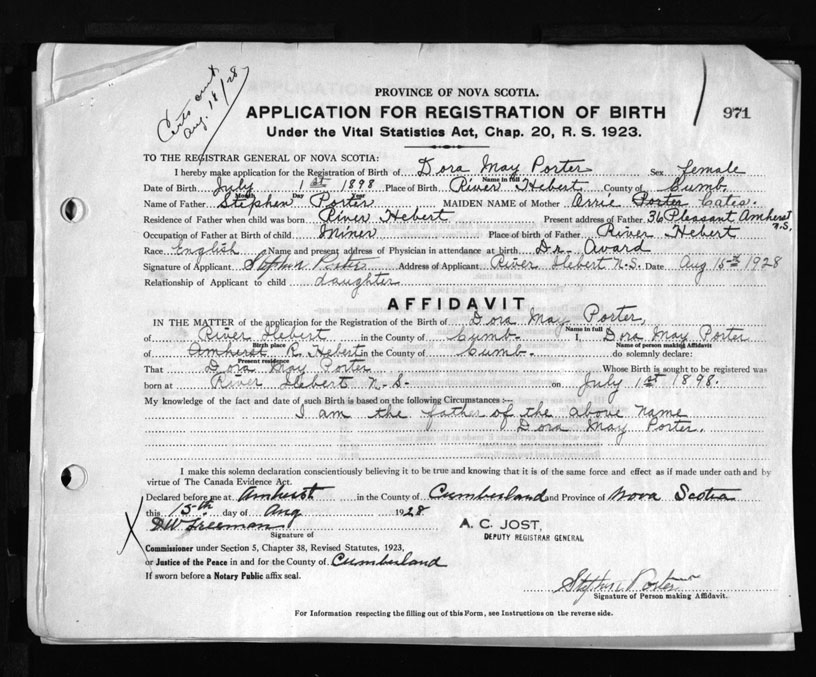 Certs cards
Aug. 18/28
PROVINCE OF NOVA SCOTIA.
APPLICATION FOR REGISTRATION OF BIRTH
971
Under the Vital Statistics Act, Chap. 20, R. S. 1923.
TO THE REGISTRAR GENERAL OF NOVA SCOTIA:
I hereby make application for the Registration of Birth of Dora May Porter Sex female
Name in full
Date of Birth July 1st 1898 Place of Birth River Hebert County of Cumb.
Month Day Year
Name of Father Stephen Porter MAIDEN NAME of Mother Arrie Porter Cates.
Residence of Father when child was born River Hebert Present address of Father 36 Pleasant Amherst N.S.
Occupation of Father at Birth of child Miner Place of birth of Father River Hebert
Race English Name and present address of Physician in attendance at birth Dr. Award
Signature of Applicant Stephen Porter Address of Applicant River Hebert N.S. Date Aug 15th 1928
Relationship of Applicant to child daughter
AFFIDAVIT
IN THE MATTER of the application for the Registration of the Birth of Dora May Porter,
Name in full
of River Hebert in the County of Cumb. I, Dora May Porter
Birth place Name of person making Affidavit
of Amherst R. Hebert in the County of Cumb. do solemnly declare:
Present residence
That Dora May Porter Whose Birth is sought to be registered was
born at River Hebert N.S. on July 1st 1898.
My knowledge of the fact and date of such Birth is based on the following Circumstances :-
I am the father of the above name
Dora May Porter.
I make this solemn declaration conscientiously believing it to be true and knowing that it is of the same force and effect as if made under oath and by
virtue of The Canada Evidence Act.
Declared before me at Amherst in the County of Cumberland and Province of Nova Scotia
this 15th day of Aug 1928
DW Freeman
Signature of
A. C. JOST,
DEPUTY REGISTRAR GENERAL
Commissioner under Section 5, Chapter 38, Revised Statutes, 1923,
or Justice of the Peace in and for the County of Cumberland
If sworn before a Notary Public affix seal.
Stephen Porter
Signature of Person making Affidavit.
For Information respecting the filling out of this Form, see Instructions on the reverse side.